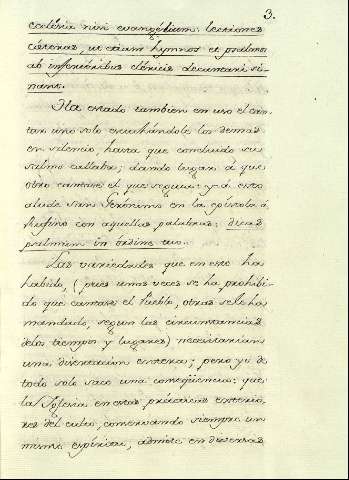 3.
ecclésia nisi evangélium: lectiones
cæteras, ut etiam hymnos et psalmos
ab inferióribus cléricis decantari si-
nant.
Ha estado tambien en uso el can-
tar uno solo escuchándole los demas
en silencio, hasta que concluido su
salmo callaba; dando lugar á que
otro cantase el que seguia: y á esto
alude San Gerónimo en la epístola á
Rufino con aquellas palabras: dicas
psalmum in órdine tuo.
Las variedades que en esto ha
habido, (pues unas veces se ha prohibi-
do que cantase el Pueblo, otras se le ha
mandado, segun las circunstancias
de los tiempos y lugares) necesitarian
una disertacion entera; pero yo de
todo solo saco una consequencia: que
la Iglesia en estas prácticas exterio-
res del culto, conservando siempre un
mismo espíritu, admite en diversas